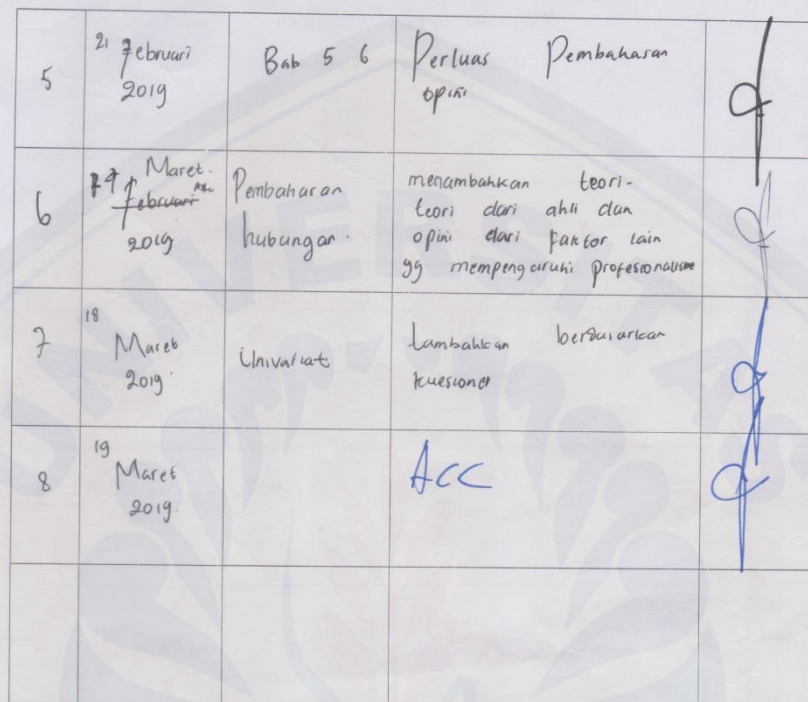 5
21 Februari
2019
Bab 5 6
Perluas Pembaharan
opini
6
Maret.
Februari
2019
Pembaharan
hubungan.
menambahkan teori-
teori dari ahli dan
opini dari faktor lain
yg mempengaruhi profesionalisme
7
18
Maret
2019.
Univariat
tambahkan berdasarkan
kuesioner
8
19
Maret
2019.
ACC
UNIVERSITAS